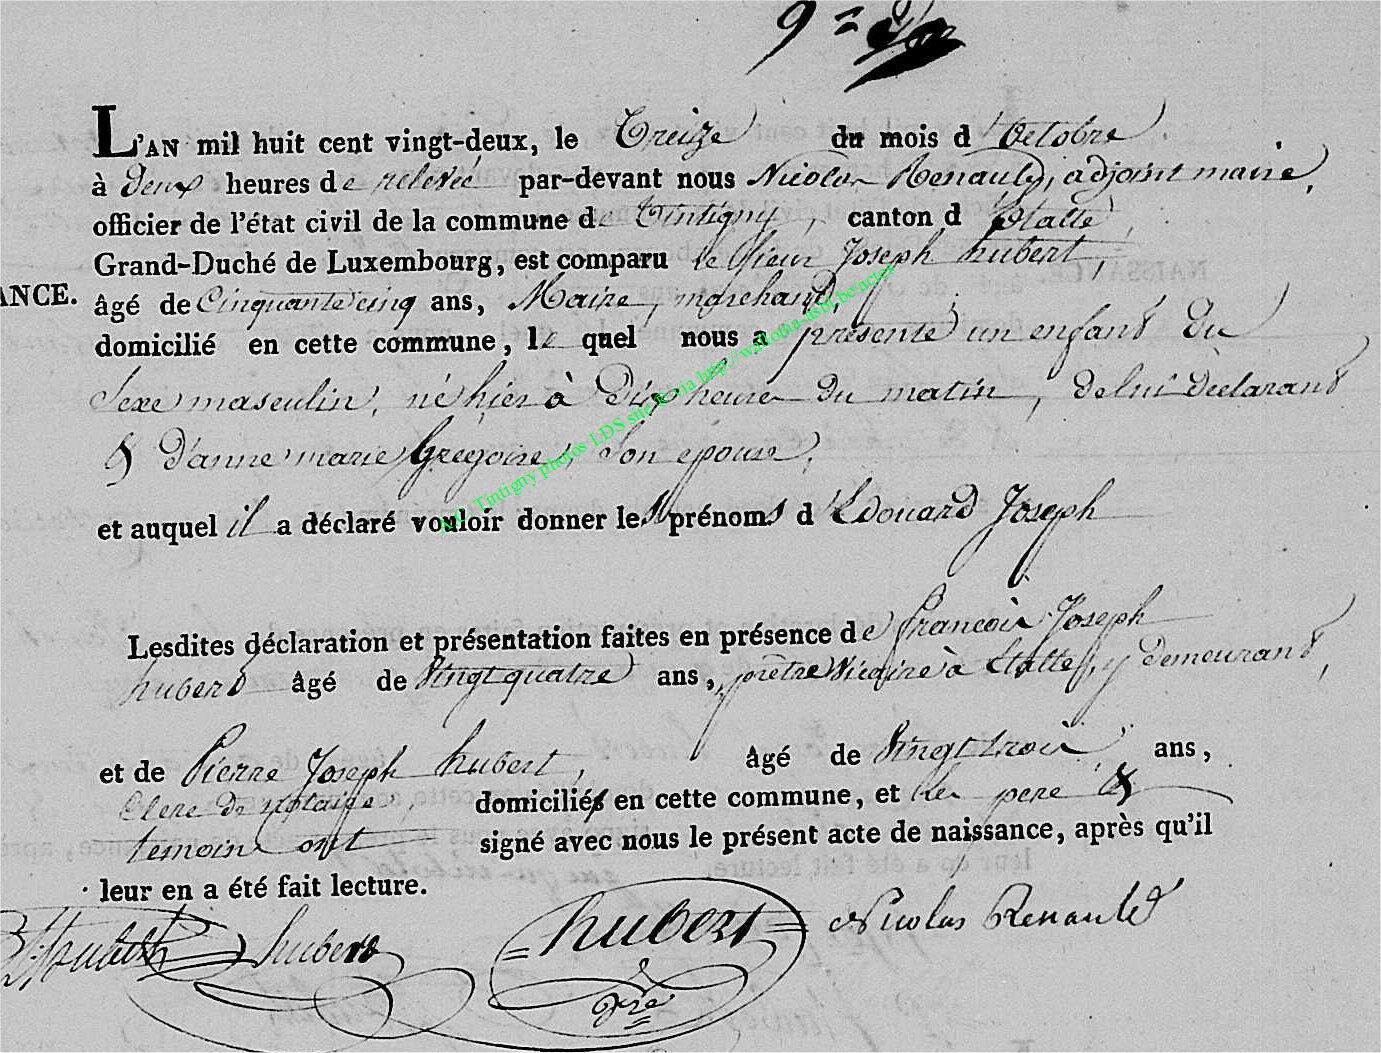 9 =
L'AN mil huit cent vingt-deux, le Treize du mois d'Octobre
à deux heures de relevée par-devant nous Nicolas Renauld, adjoint maire,
officier de l'état civil de la commune de Tintigny, canton d'Etalle,
Grand-Duché de Luxembourg, est comparu le sieur Joseph hubert,
ANCE. âgé de Cinquante cinq ans, Maire, marchand,
domicilié en cette commune, le quel nous a présenté un enfant du
Sexe masculin, né hier à dix heures du matin, de lui Déclarant
& d'anne marie Grégoire, son epouse,
A.C. Tintigny photos LDS site de via http://wallonia-asbl.be/actes
et auquel il a déclaré vouloir donner les prénoms d'Edouard Joseph
Lesdites déclaration et présentation faites en présence de francois Joseph
hubert âgé de Vingt quatre ans, prêtre Vicaire à Etalle, y demeurant,
et de Pierre Joseph hubert, âgé de Vingt trois ans,
Clerc de notaire domiciliés en cette commune, et les pere &
temoins ont signé avec nous le présent acte de naissance, après qu'il
leur en a été fait lecture.
hubert hubert Nicolas Renauld